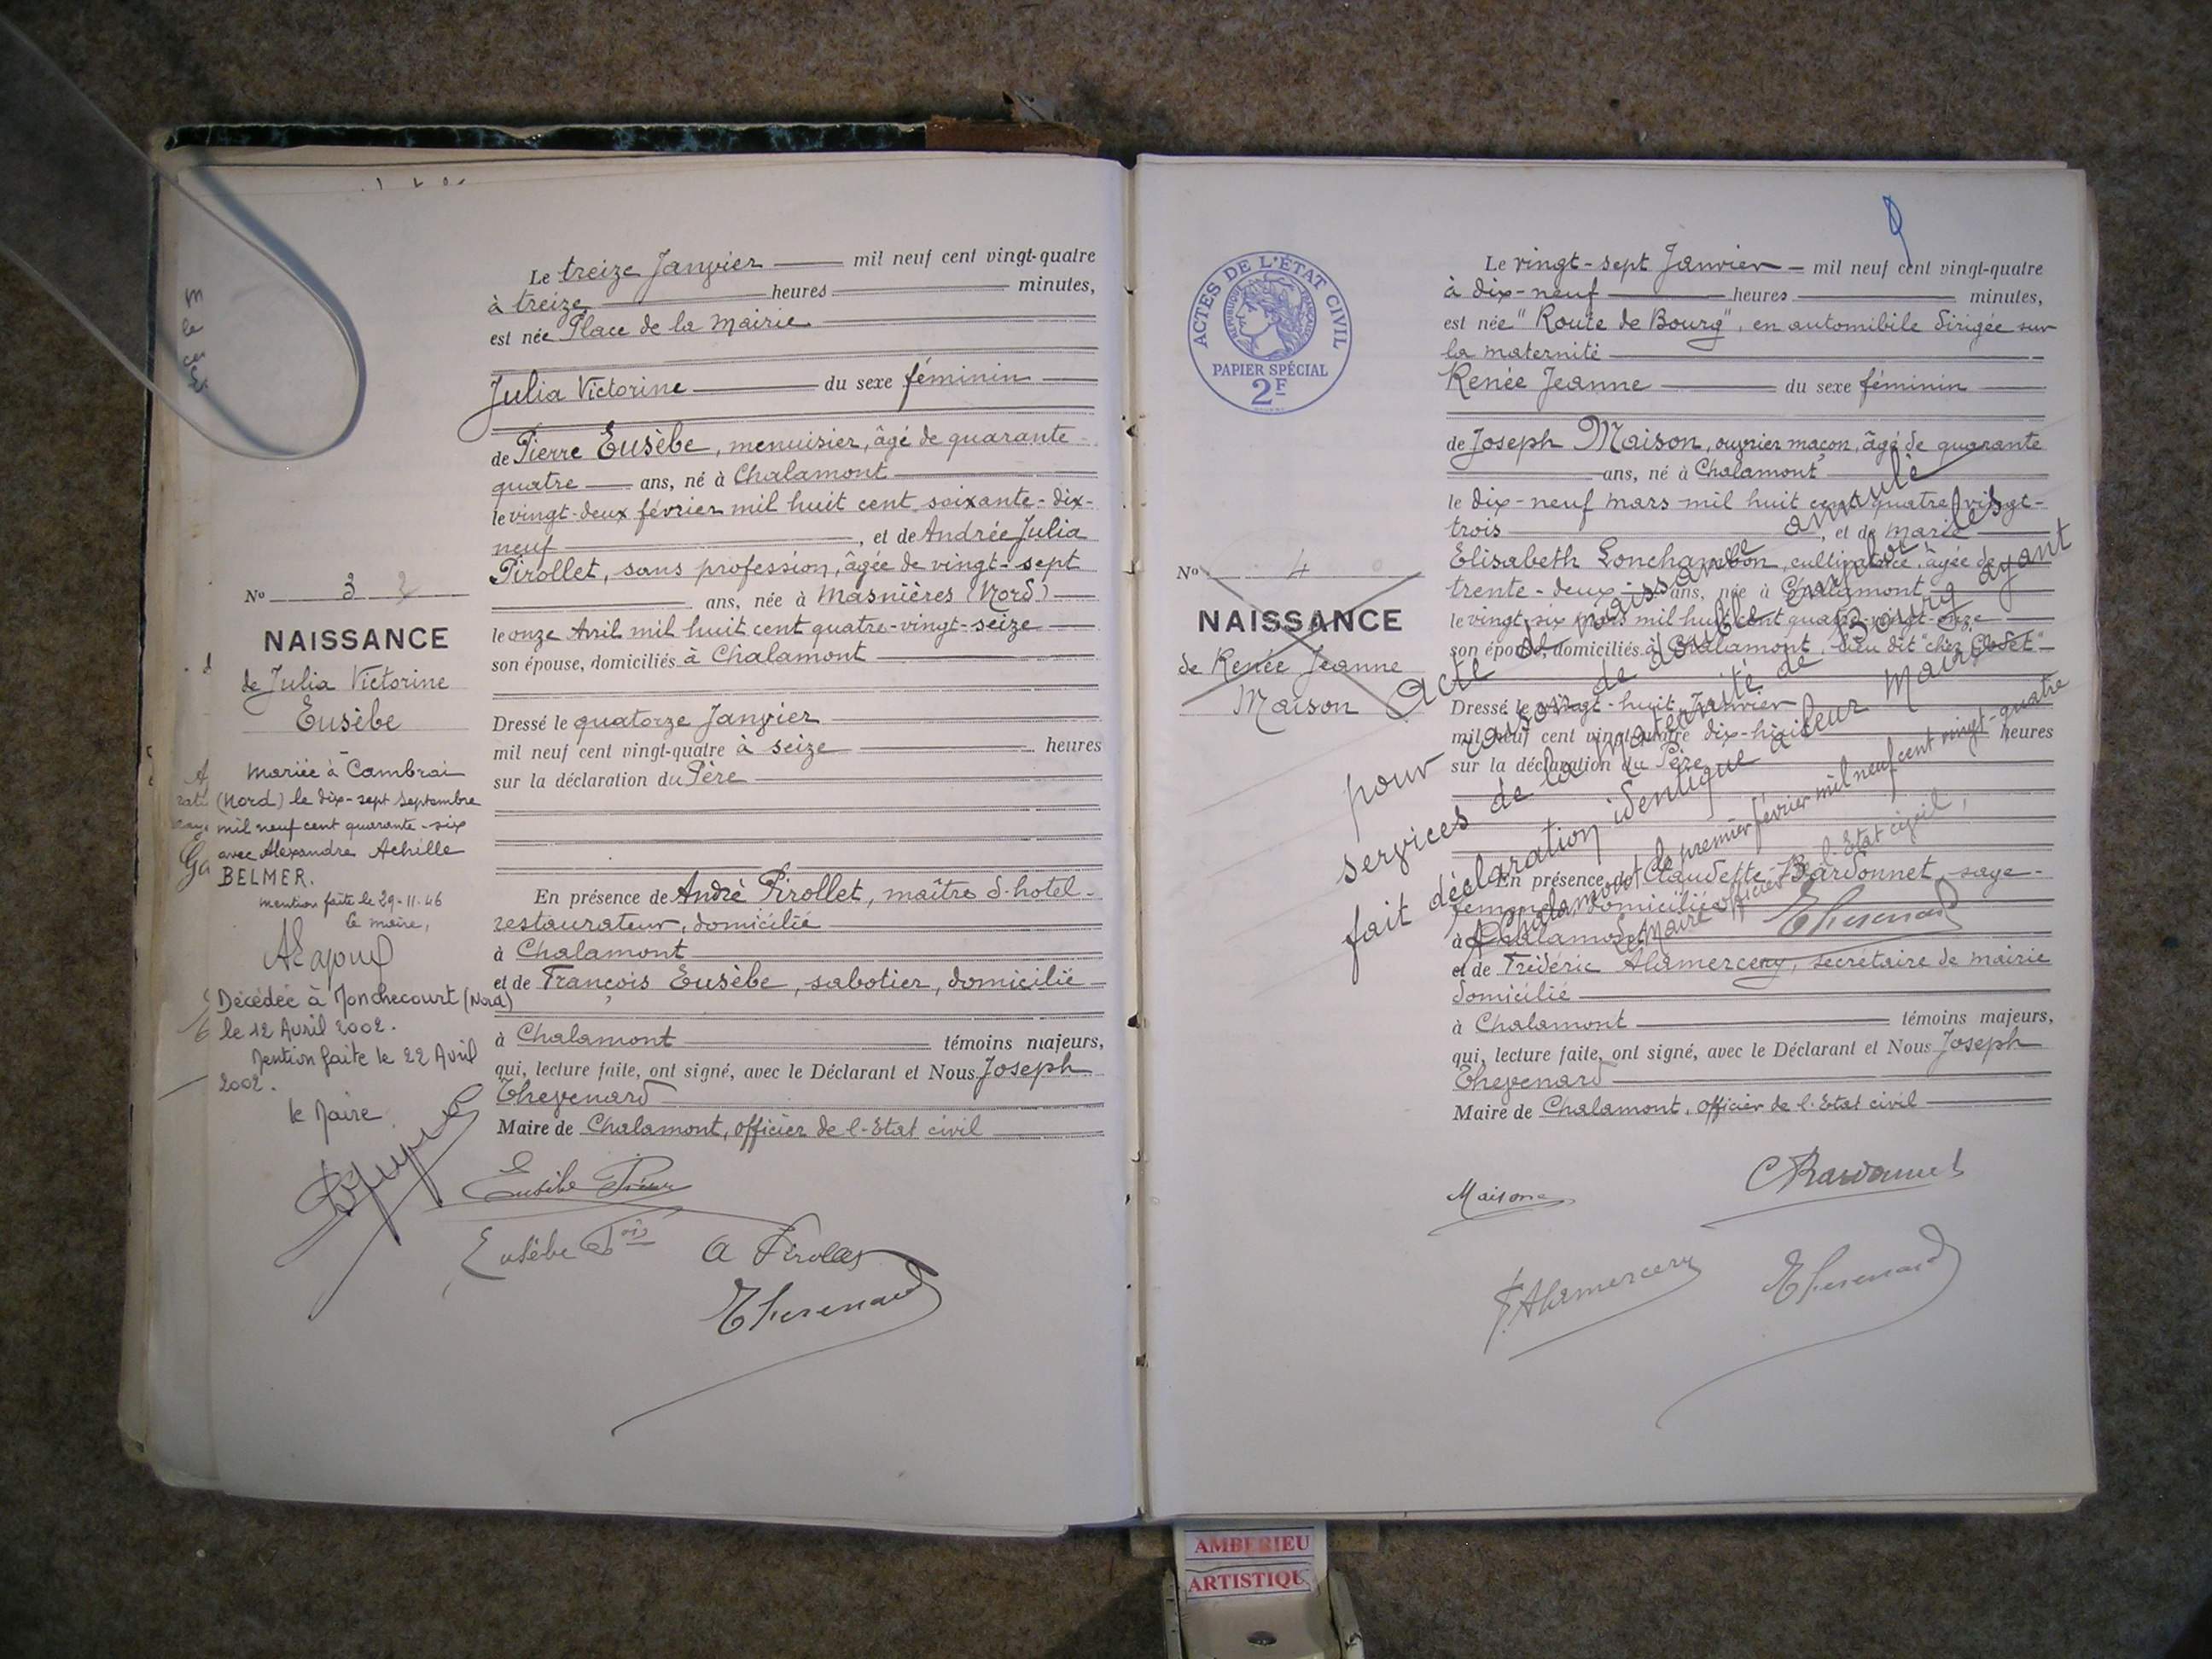 Le treize Janvier mil neuf cent vingt-quatre
à treize heures minutes,
est née Place de la Mairie
Julia Victorine du sexe féminin
de Pierre Eusèbe, menuisier, âgé de quarante-
quatre ans, né à Chalamont
le vingt-deux février mil huit cent soixante-dix-
neuf, et de Andrée Julia
Pirollet, sans profession, âgée de vingt-sept
ans, née à Masnières (Nord)
le onze Avril mil huit cent quatre-vingt-seize
son épouse, domiciliés à Chalamont
Dressé le quatorze Janvier
mil neuf cent vingt-quatre à seize heures
sur la déclaration du Père
En présence de André Pirollet, maître d'hotel-
restaurateur, domicilié
à Chalamont
et de François Eusèbe, sabotier, domicilié
à Chalamont témoins majeurs,
qui, lecture faite, ont signé, avec le Déclarant et Nous Joseph
Thevenard
Maire de Chalamont, officier de l'Etat civil
No 3
NAISSANCE
de Julia Victorine
Eusèbe
Mariée à Cambrai
(Nord) le dix-sept Septembre
mil neuf cent quarante-six
avec Alexandre Achille
BELMER.
Mention faite le 29-11-46
Le maire,
Décédée à Monchecourt (Nord)
le 12 Avril 2002.
Mention faite le 22 Avril
2002.
le Maire
Eusèbe Pierre
Eusèbe Fois
A Pirollet
Thevenard
ACTES DE L'ÉTAT CIVIL
RÉPUBLIQUE FRANÇAISE
PAPIER SPÉCIAL
2F
Le vingt-sept Janvier mil neuf cent vingt-quatre
à dix-neuf heures minutes,
est née "Route de Bourg", en automibile dirigée sur
la maternité
Renée Jeanne du sexe féminin
de Joseph Maison, ouvrier maçon, âgé de quarante
ans, né à Chalamont
le dix-neuf mars mil huit cent quatre vingt-
trois, et de Marie
Elisabeth Lonchambon, cultivatrice, âgée de
trente-deux ans, née à Chalamont
le vingt-six mars mil huit cent quatre-vingt-onze
son épouse, domiciliés à Chalamont, lieu dit "chez Clodet"
Dressé le vingt-huit Janvier
mil neuf cent vingt-quatre dix-huit heures
sur la déclaration du Père
En présence de Claudette Bardonnet, sage-
femme, domiciliée
à Chalamont
et de Frédéric Alamercery, secrétaire de mairie
domicilié
à Chalamont témoins majeurs,
qui, lecture faite, ont signé, avec le Déclarant et Nous Joseph
Thevenard
Maire de Chalamont, officier de l'Etat civil
No 4
NAISSANCE
de Renée Jeanne
Maison
Acte de naissance annulé
pour raison de double emploi les
services de la maternité de Bourg ayant
fait déclaration identique à leur Mairie
A Chalamont le premier février mil neuf cent vingt-quatre
Le Maire officier de l'Etat civil,
Thevenard
Maison
C Bardonnet
F Alamercery
Thevenard
AMBERIEU
ARTISTIQU